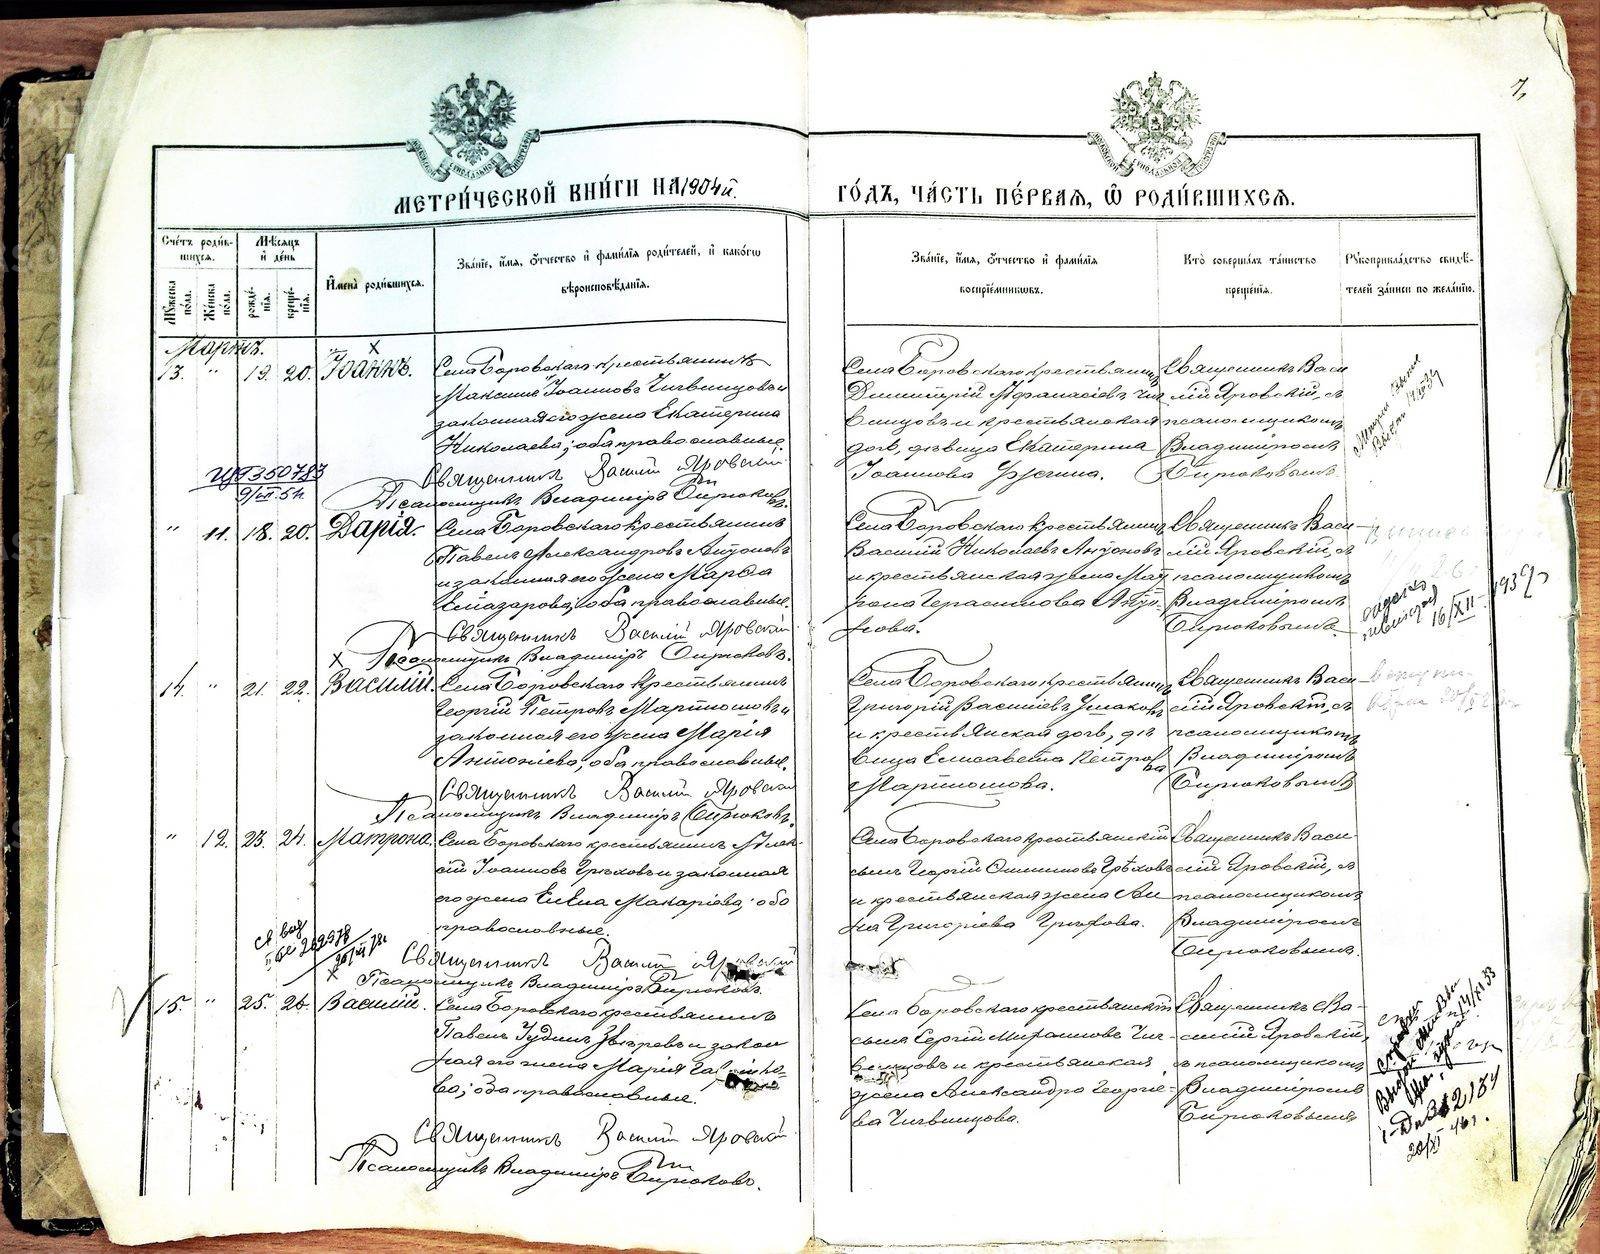 7,
МЕТРИ́ЧЕСКОЙ КНИ́ГИ НА 1904й.
ГО́ДЪ, ЧА́СТЬ ПЕ́РВАЯ, Ѡ҆ РОДИ́ВШИХСЯ.
Сче́тъ роди́в-
шихся.
Мꙋжеска по́ла.
Же́нска по́ла.
Мѣ́сяцъ
и де́нь
рожде́-
нїя.
креще́-
нїя.
И҆мена̀ роди́вшихся.
Зва́нїе, и҆́мя, ѻ҆́тчество и҆ фами́лїя роди́телей, и҆ како́гѡ
вѣроисповѣ́данїя.
Зва́нїе, и҆́мя, ѻ҆́тчество и҆ фами́лїя
воспрїе́мниковъ.
Кто̀ соверша́лъ та́инство
креще́нїя.
Рꙋкоприкла́дство свидѣ́-
телей за́писи по жела́нїю.
Мартъ.
13. " 19. 20. Іоаннъ.
Села Боровскаго крестьянинъ
Максимъ Іоанновъ Чигвинцовъ и
законная его жена Екатерина
Николаева; оба православные.
Священникъ Василій Яровскій
Псаломщикъ Владиміръ Бирюковъ.
Села Боровскаго крестьянинъ
Димитрій Аѳанасіевъ Чиг
винцовъ и крестьянская
дочь, дѣвица Екатерина
Іоаннова
Священникъ Васи
лій Яровскій, съ
псаломщикомъ
Владиміромъ
Бирюковымъ.
9/VII-54
" 11. 18. 20. Дарія.
Села Боровскаго крестьянинъ
Павелъ Александровъ Антоновъ
и законная его жена Марѳа
Елеазарова; оба православные.
Священникъ Василій Яровскій
Псаломщикъ Владиміръ Бирюковъ.
Села Боровскаго крестьянинъ
Василій Николаевъ Антоновъ
и крестьянская жена Мат
рона Герасимова Анто-
нова.
Священникъ Васи-
лій Яровскій, съ
псаломщикомъ
Владиміромъ
Бирюковымъ.
16/XII-1939
14. " 21. 22. Василій.
Села Боровскаго крестьянинъ
Георгій Петровъ Мартюшовъ и
законная его жена Марія
Антоніева; оба православные.
Священникъ Василій Яровскій
Псаломщикъ Владиміръ Бирюковъ.
Села Боровскаго крестьянинъ
Григорій Василіевъ Ушаковъ
и крестьянская дочь, дѣ
вица Елисавета Петрова
Мартюшова.
Священникъ Васи
лій Яровскій, съ
псаломщикомъ
Владиміромъ
Бирюковымъ.
" 12. 23. 24. Матрона.
Села Боровскаго крестьянинъ Алек-
сій Іоанновъ Грѣховъ и законная
его жена Елена Макаріева; оба
православные.
Священникъ Василій Яровскій
Псаломщикъ Владиміръ Бирюковъ.
Села Боровскаго крестьянскій
сынъ Георгій Симеоновъ Грѣховъ
и крестьянская жена Ан
на Григоріева Грѣхова.
Священникъ Васи-
лій Яровскій, съ
псаломщикомъ
Владиміромъ
Бирюковымъ.
15. " 25. 26. Василій.
Села Боровскаго крестьянинъ
Павелъ Іудинъ Звѣревъ и закон
ная его жена Марія
ва; оба православные.
Священникъ Василій Яровскій
Псаломщикъ Владиміръ Бирюковъ.
Села Боровскаго крестьянскій
сынъ Сергій Михаиловъ Чиг-
винцовъ и крестьянская
жена Александра Георгіе-
ва Чигвинцова.
Священникъ Ва-
силій Яровскій,
съ псаломщикомъ
Владиміромъ
Бирюковымъ
20/XI 46 г.